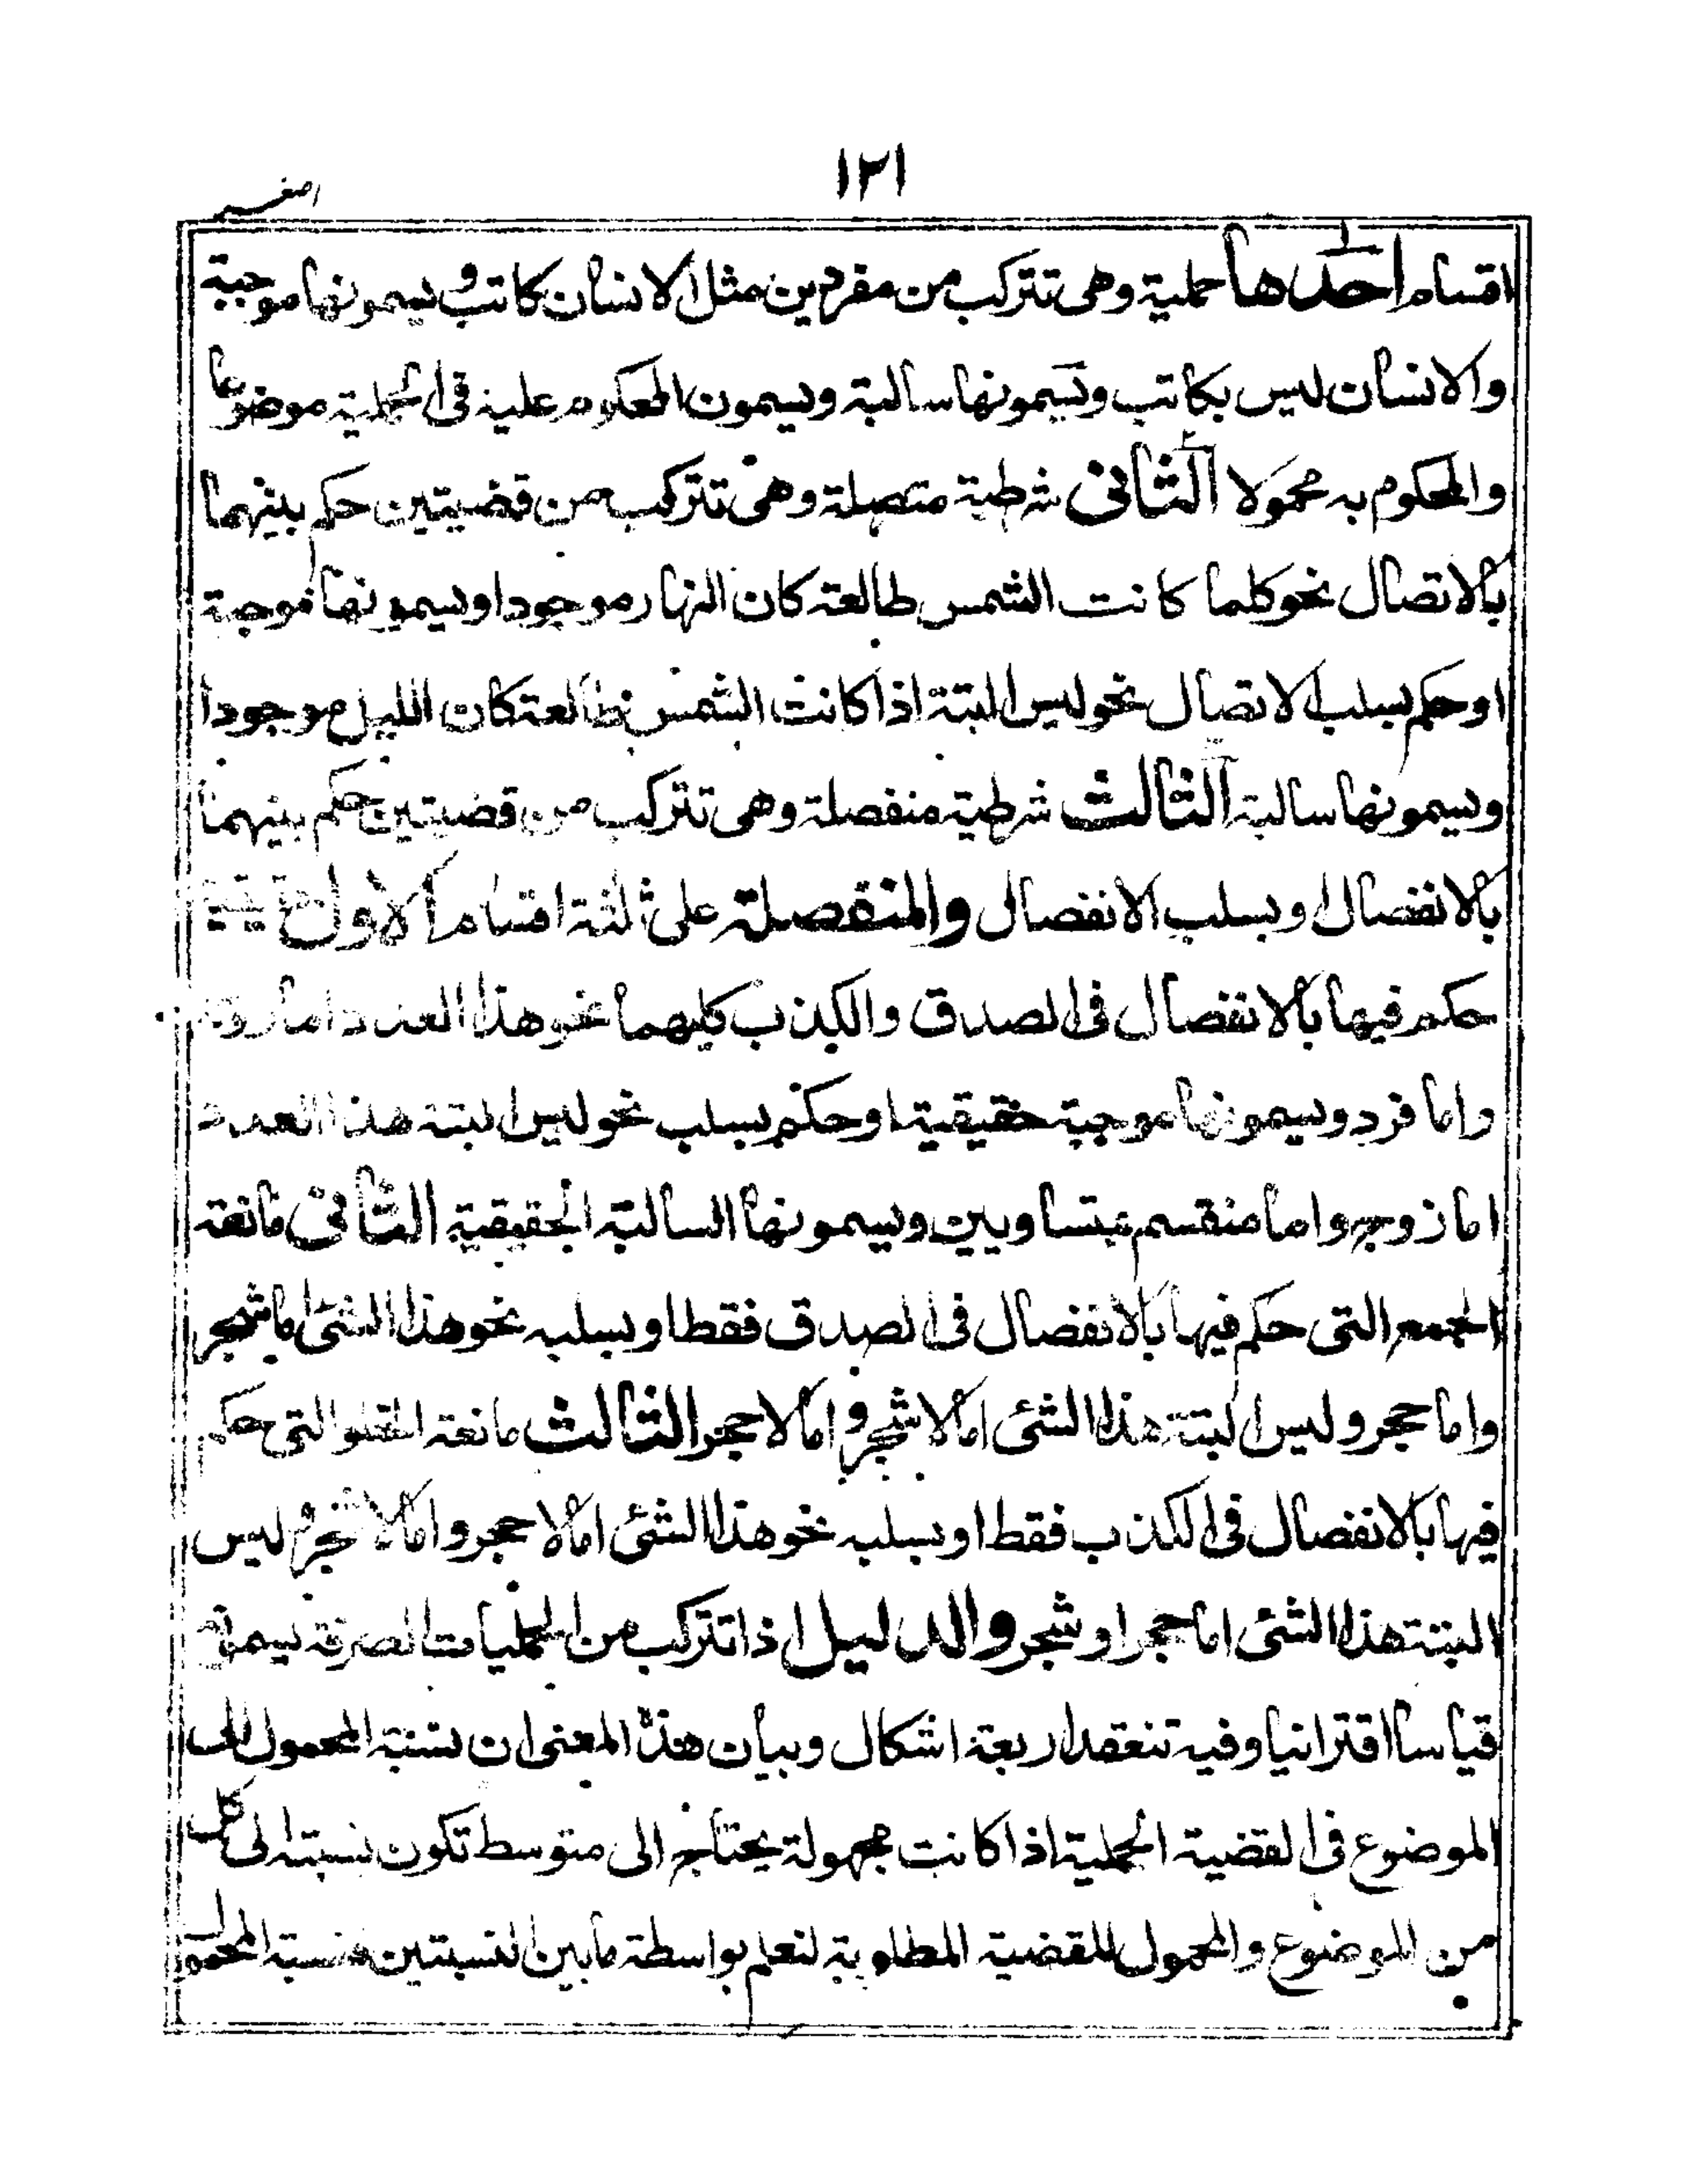 ١٢١
اقسام احدها حملية وهى تتركب من مفردين مثل الانسان كاتب ويسمونها موجبة
والانسان ليس بكاتب ويسمونها سالبة ويسمون المحكوم عليه فى الحملية موضوعا
والمحكوم به محمولا الثانى شرطية متصلة وهى تتركب من قضيتين حكم بينهما
بالاتصال نحو كلما كانت الشمس طالعة كان النهار موجودا ويسمونها موجبة
او حكم بسلب الاتصال نحو ليس البتة اذا كانت الشمس طالعة كان الليل موجودا
ويسمونها سالبة الثالث شرطية منفصلة وهى تتركب من قضيتين حكم بينهما
بالانفصال او بسلب الانفصال والمنفصلة على ثلثة اقسام الاول
حكم فيها بالانفصال فى الصدق والكذب كليهما نحو هذا العدد اما زوج
واما فرد ويسمونها موجبة حقيقية او حكم بسلب نحو ليس البتة هذا العدد
اما زوج واما منقسم بمتساويين ويسمونها السالبة الحقيقية الثانى مانعة
الجمع التى حكم فيها بالانفصال فى الصدق فقط او بسلبه نحو هذا الشئ اما شجر
واما حجر وليس البتة هذا الشئ اما لا شجر واما لا حجر الثالث مانعة الخلو التى حكم
فيها بالانفصال فى الكذب فقط او بسلبه نحو هذا الشئ اما لا حجر واما لا شجر وليس
البتة هذا الشئ اما حجر او شجر والدليل اذا تركب من الحمليات الصرفة يسمى
قياسا اقترانيا وفيه تنعقد اربعة اشكال وبيان هذا المعنى ان نسبة المحمول الى
الموضوع فى القضية الحملية اذا كانت مجهولة يحتاج الى متوسط تكون نسبته الى كل
من الموضوع والمحمول للقضية المطلوبة لنعلم بواسطة مابين النسبتين نسبة المحمول